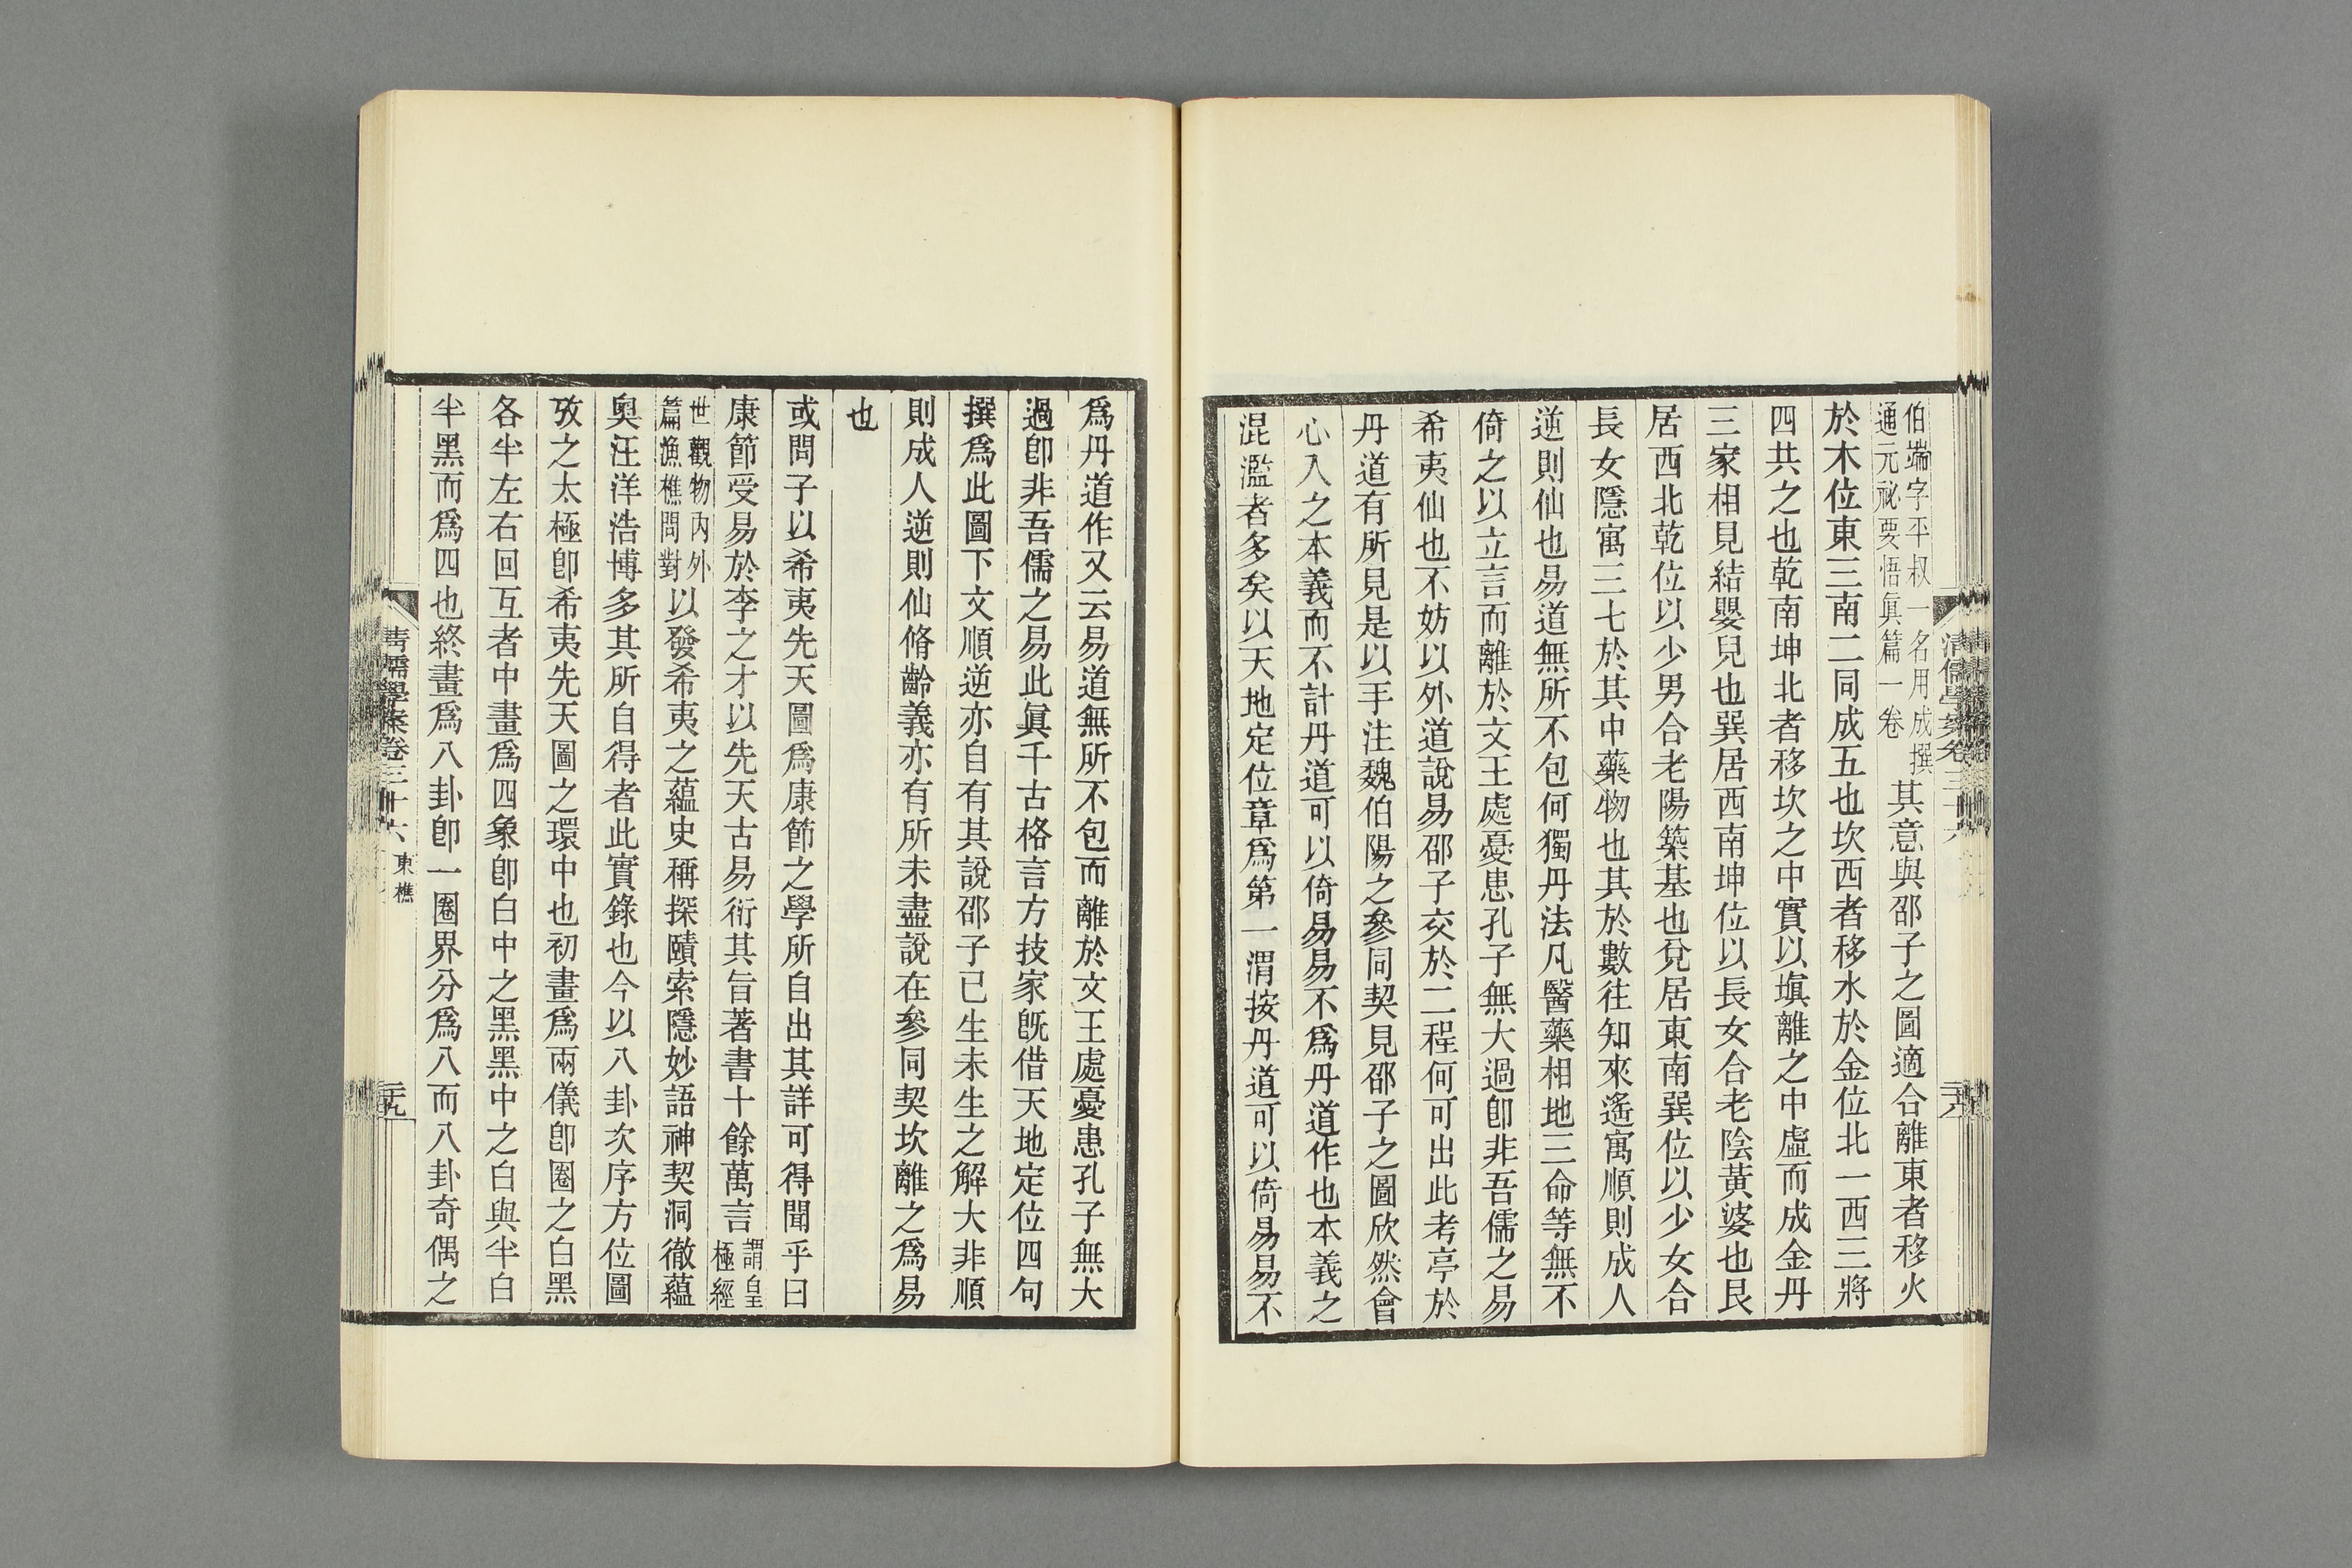 伯端字平叔一名用成撰
通元祕要悟眞篇一卷
其意與邵子之圖適合離東者移火
於木位東三南二同成五也坎西者移水於金位北一西三將
四共之也乾南坤北者移坎之中實以塡離之中虛而成金丹
三家相見結嬰兒也巽居西南坤位以長女合老陰黃婆也艮
居西北乾位以少男合老陽築基也兌居東南巽位以少女合
長女隱寓三七於其中藥物也其於數往知來遙寓順則成人
逆則仙也易道無所不包何獨丹法凡醫藥相地三命等無不
倚之以立言而離於文王處憂患孔子無大過卽非吾儒之易
希夷仙也不妨以外道說易邵子交於二程何可出此考亭於
丹道有所見是以手注魏伯陽之參同契見邵子之圖欣然會
心入之本義而不計丹道可以倚易易不爲丹道作也本義之
混濫者多矣以天地定位章爲第一渭按丹道可以倚易易不
爲丹道作又云易道無所不包而離於文王處憂患孔子無大
過卽非吾儒之易此眞千古格言方技家旣借天地定位四句
撰爲此圖下文順逆亦自有其說邵子已生未生之解大非順
則成人逆則仙脩齡義亦有所未盡說在參同契坎離之爲易
也
或問子以希夷先天圖爲康節之學所自出其詳可得聞乎曰
康節受易於李之才以先天古易衍其旨著書十餘萬言
謂皇
極經
世觀物內外
篇漁樵問對
以發希夷之蘊史稱探賾索隱妙語神契洞徹蘊
奧汪洋浩博多其所自得者此實錄也今以八卦次序方位圖
攷之太極卽希夷先天圖之環中也初畫爲兩儀卽圈之白黑
各半左右回互者中畫爲四象卽白中之黑黑中之白與半白
半黑而爲四也終畫爲八卦卽一圈界分爲八而八卦奇偶之
清儒學案卷三十六 東樵
二十九